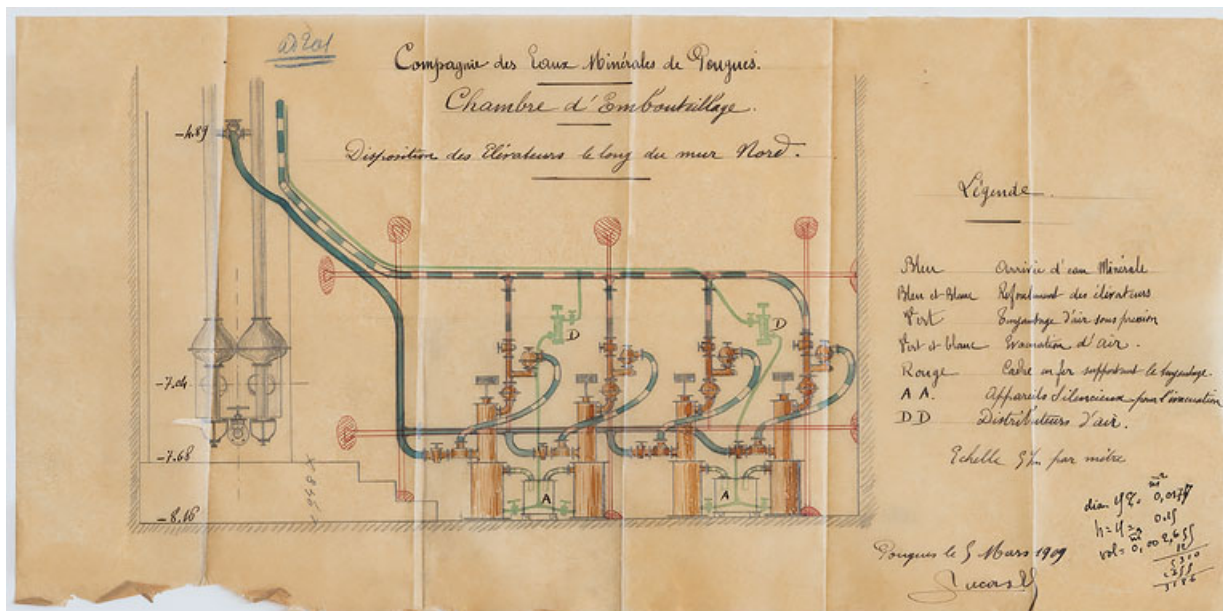 Compagnie des Eaux Minérales de Pougues.
Chambre d'Embouteillage.
Disposition des Elévateurs le long du mur Nord.
-4.89
-7.04
-7.68
-8.16
D
D
A
A
Légende
Bleu Arrivée d'eau Minérale
Bleu et Blanc Refoulement des élévateurs
Vert Tuyautage d'air sous pression
Vert et blanc Evacuation d'air.
Rouge Cadre en fer supportant le tuyautage.
A A. Appareils Silencieux pour l'évacuation
D D Distributeurs d'air.
Echelle 5/m par mètre
Pougues le 5 Mars 1909